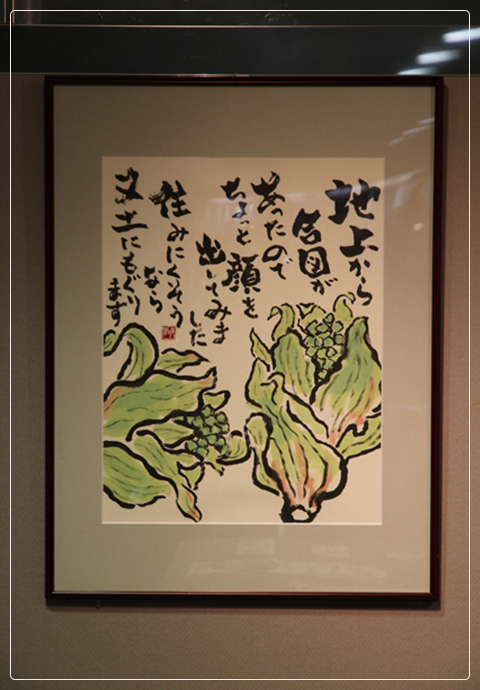 地上から
合図が
あったので
ちょっと顔を
出してみま
した
住みにくそう
なら
又土にもぐり
ます